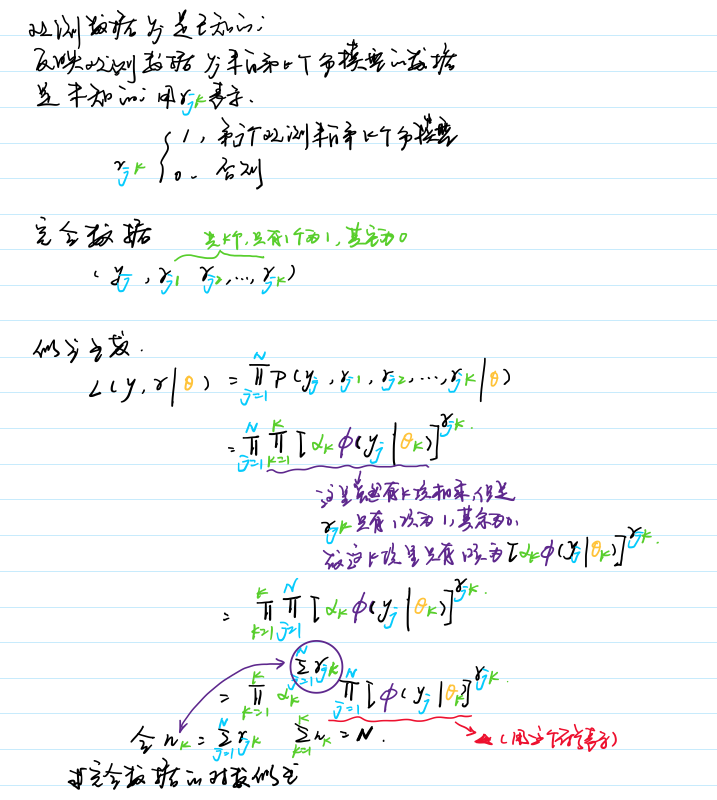 观测数据 yⱼ 是已知的;
反映观测数据 yⱼ 来自第 K 个分模型的数据
是未知的; 用 γⱼₖ 表示.
γⱼₖ { 1, 第 j 个观测来自第 K 个分模型
0. 否则
完全数据
共K个, 只有1个为1, 其它为0
(yⱼ, γⱼ₁ γⱼ₂, ..., γⱼₖ)
似然函数.
L(y, γ|θ) = ∏ⱼ₌₁ᴺ P(yⱼ, γⱼ₁, γⱼ₂, ..., γⱼₖ|θ)
= ∏ⱼ₌₁ᴺ ∏ₖ₌₁ᴷ [αₖ φ(yⱼ|θₖ)]^γⱼₖ.
这里虽然有K项相乘, 但是
γⱼₖ 只有1项为1, 其余为0.
故这K项里只有1项为 [αₖ φ(yⱼ|θₖ)]^γⱼₖ.
= ∏ₖ₌₁ᴷ ∏ⱼ₌₁ᴺ [αₖ φ(yⱼ|θₖ)]^γⱼₖ.
= ∏ₖ₌₁ᴷ αₖ^(∑ⱼ₌₁ᴺ γⱼₖ) ∏ⱼ₌₁ᴺ [φ(yⱼ|θₖ)]^γⱼₖ.
令 nₖ = ∑ⱼ₌₁ᴺ γⱼₖ ∑ₖ₌₁ᴷ nₖ = N.
→ ▲ (用这个符号表示)
完全数据的对数似然